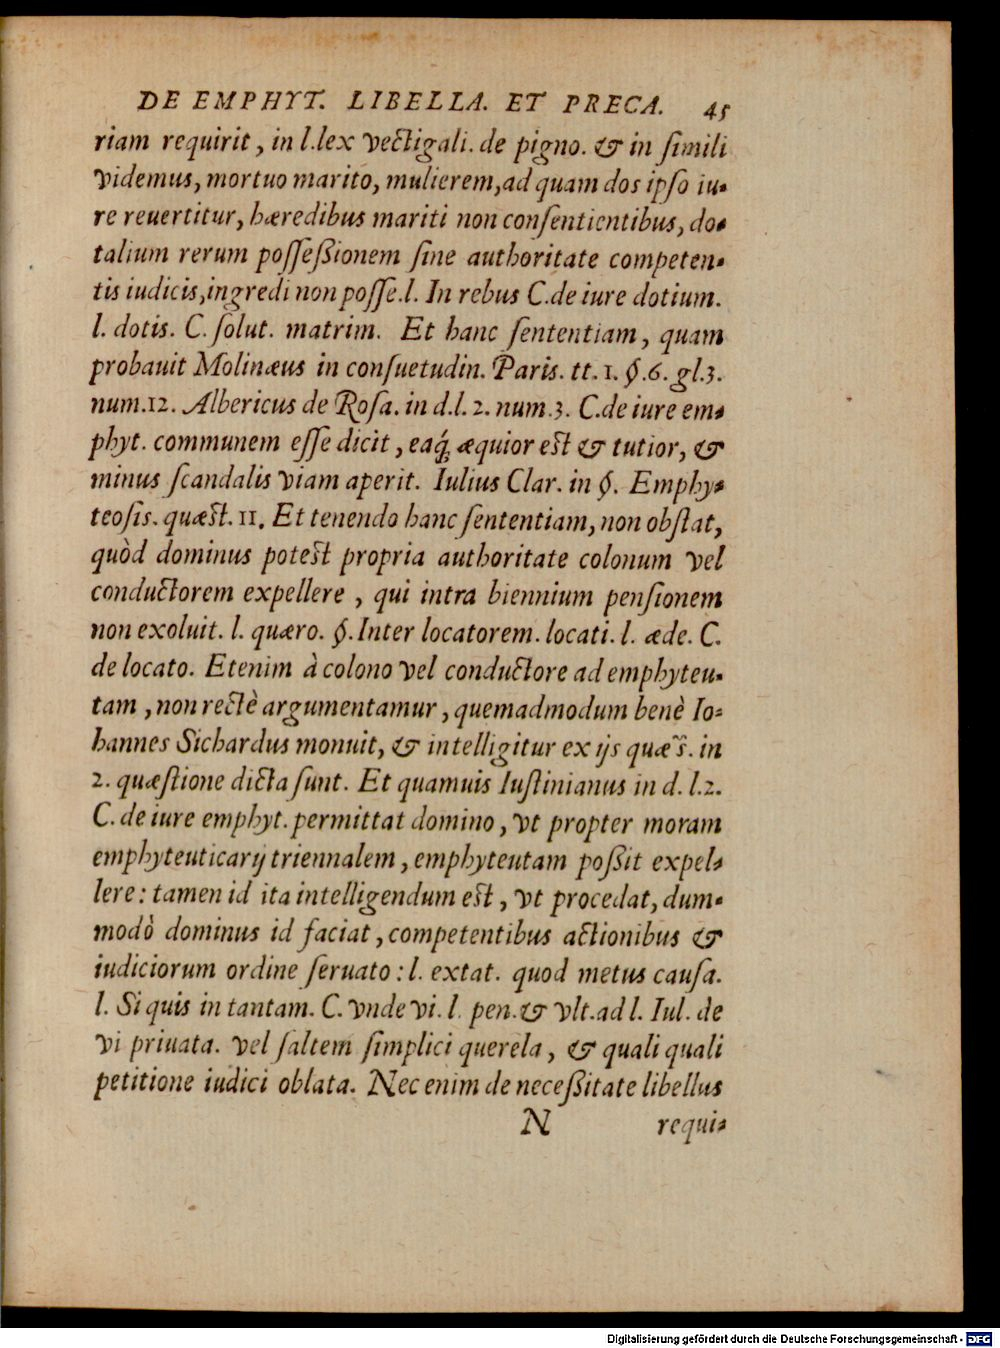 DE EMPHYT. LIBELLA. ET PRECA. 45
riam requirit, in l.lex vectigali. de pigno. & in ſimili
videmus, mortuo marito, mulierem, ad quam dos ipſo iu-
re reuertitur, hæredibus mariti non conſentientibus, do-
talium rerum poſſeßionem ſine authoritate competen-
tis iudicis, ingredi non poſſe.l. In rebus C.de iure dotium.
l. dotis. C. ſolut. matrim. Et hanc ſententiam, quam
probauit Molinæus in conſuetudin. Paris. tt.1. §.6. gl.3.
num.12. Albericus de Roſa. in d.l.2. num.3. C.de iure em-
phyt. communem eſſe dicit, eaq́; æquior est & tutior, &
minus ſcandalis viam aperit. Iulius Clar. in §. Emphy-
teoſis. quæst.11. Et tenendo hanc ſententiam, non obſtat,
quòd dominus potest propria authoritate colonum vel
conductorem expellere, qui intra biennium penſionem
non exoluit. l. quæro. §. Inter locatorem. locati. l. æde. C.
de locato. Etenim à colono vel conductore ad emphyteu-
tam, non rectè argumentamur, quemadmodum benè Io-
hannes Sichardus monuit, & intelligitur ex ijs quæ s̃. in
2. quæſtione dicta ſunt. Et quamuis Iuſtinianus in d. l.2.
C. de iure emphyt. permittat domino, vt propter moram
emphyteuticarij triennalem, emphyteutam poßit expel-
lere: tamen id ita intelligendum est, vt procedat, dum-
modò dominus id faciat, competentibus actionibus &
iudiciorum ordine ſeruato: l. extat. quod metus cauſa.
l. Si quis in tantam. C. vnde vi. l. pen. & vlt. ad l. Iul. de
vi priuata. vel ſaltem ſimplici querela, & quali quali
petitione iudici oblata. Nec enim de neceßitate libellus
N requi-
Digitalisierung gefördert durch die Deutsche Forschungsgemeinschaft - DFG